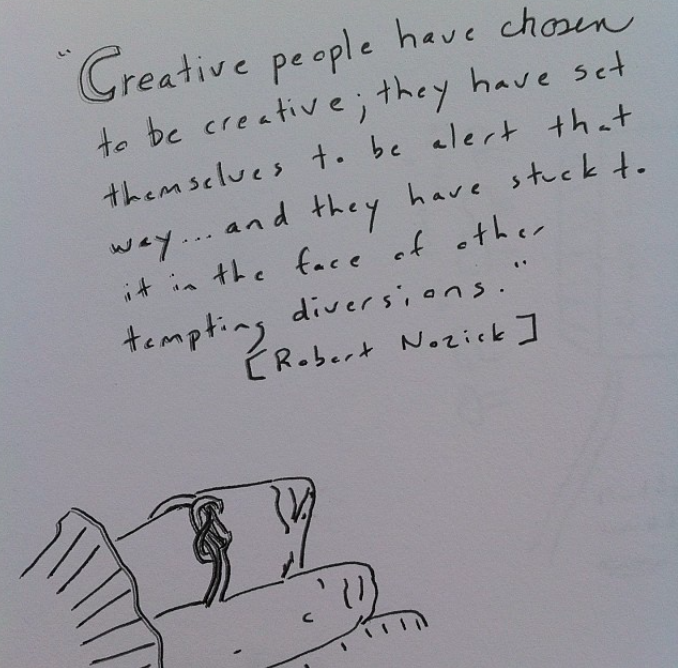 "Creative people have chosen
to be creative; they have set
themselves to be alert that
way... and they have stuck to
it in the face of other
tempting diversions."
[Robert Nozick]